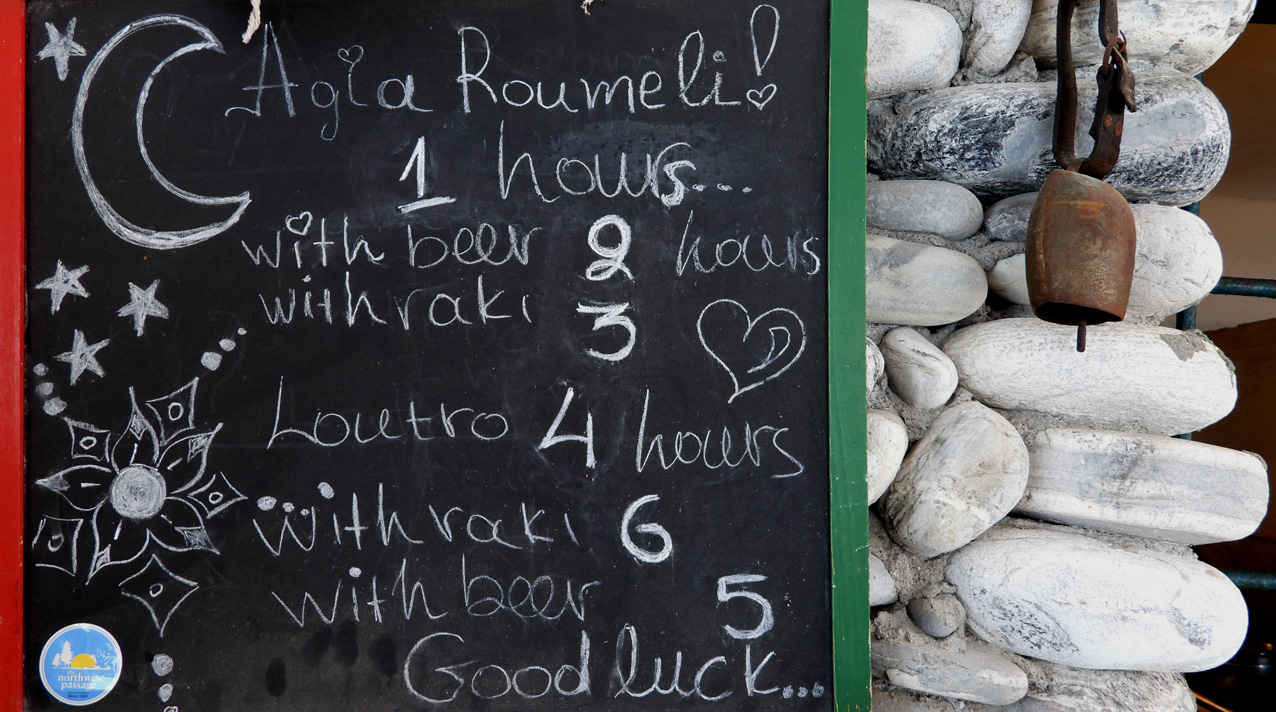 Agia Roumeli!
1 hours...
with beer 2 hours
with raki 3
Loutro 4 hours
with raki 6
with beer 5
Good luck...
northwest
passage